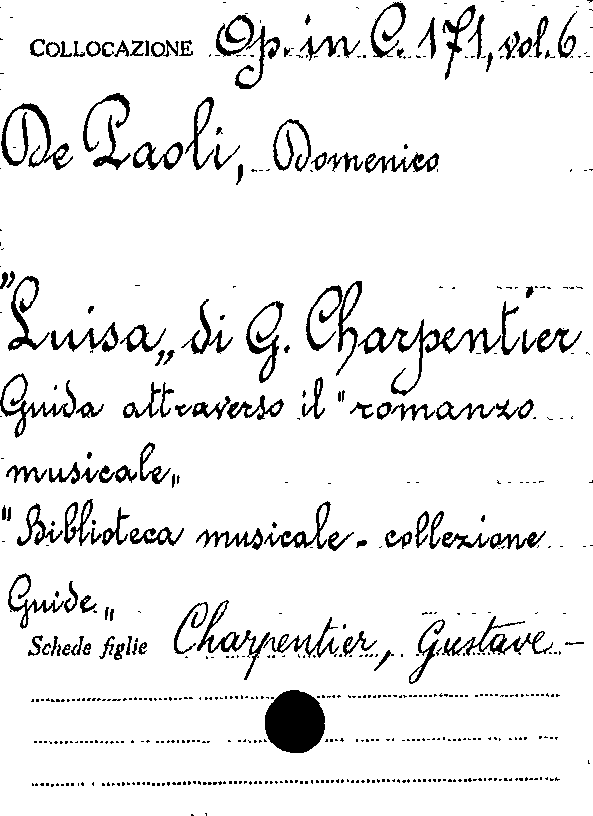 COLLOCAZIONE Op. in C. 171, vol. 6
De Paoli, Domenico
"Luisa„ di G. Charpentier
Guida attraverso il "romanzo
musicale„
"Biblioteca musicale - collezione
Guide„
Schede figlie Charpentier, Gustave -